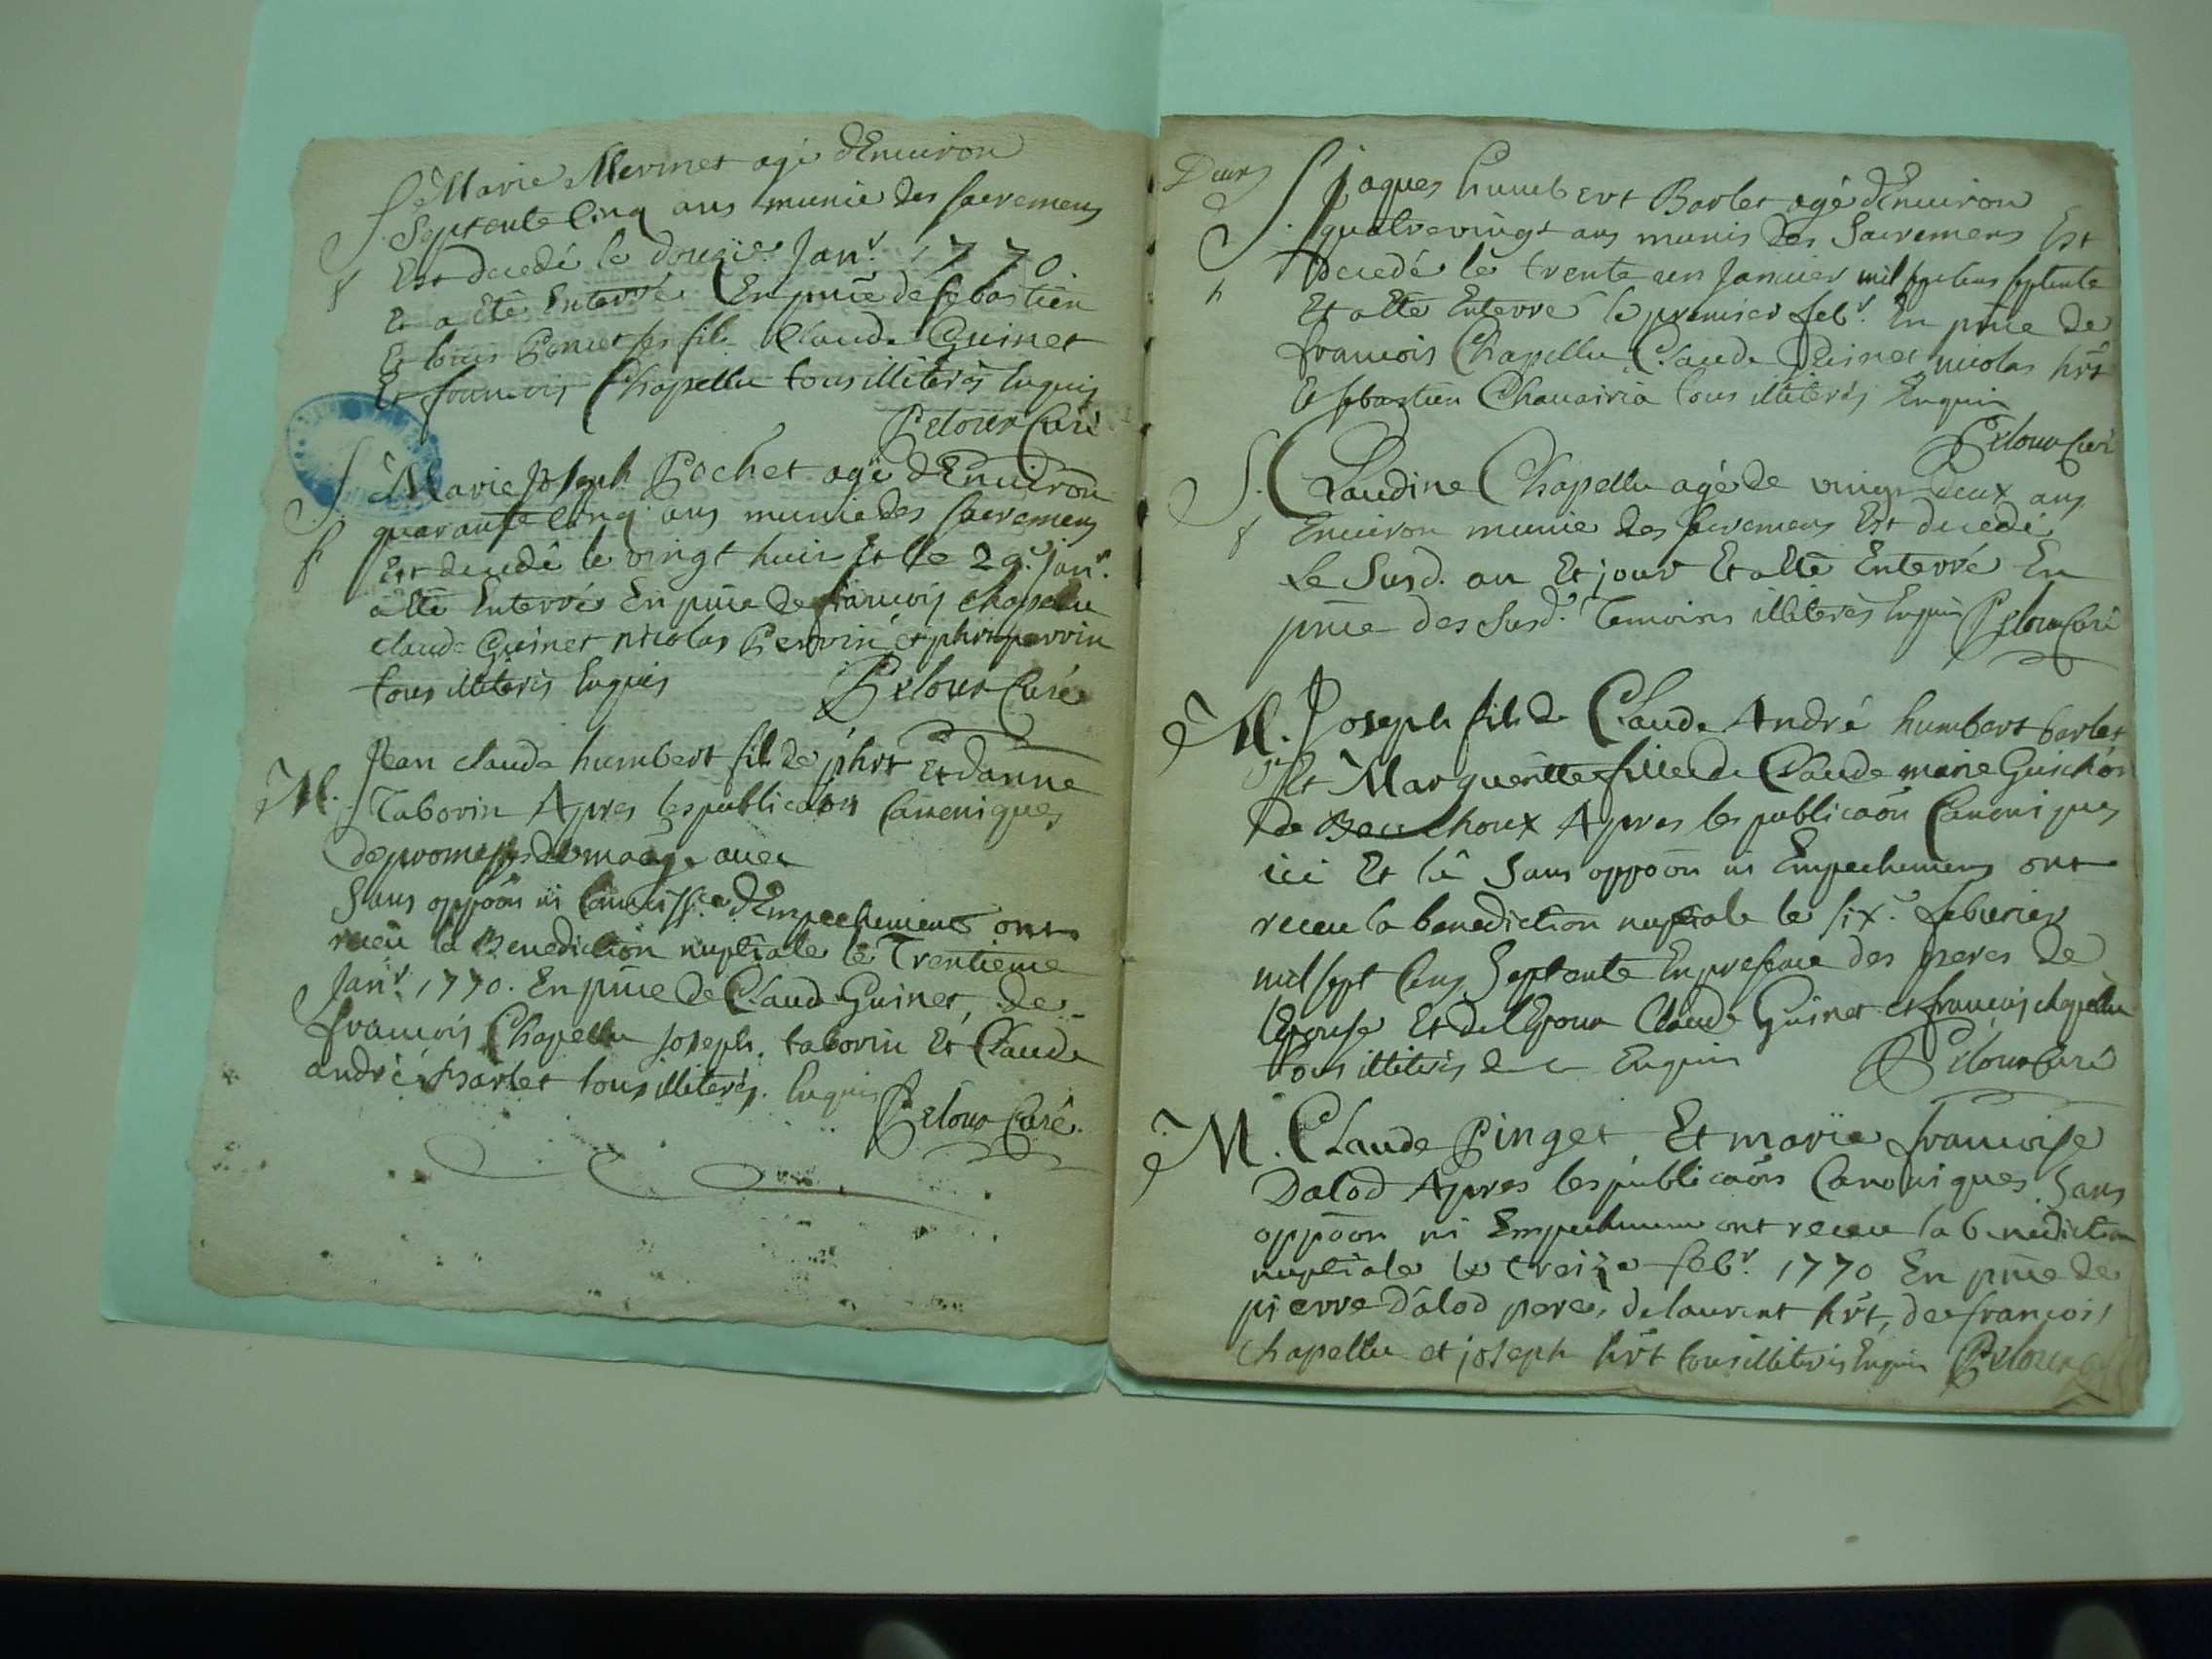 S. Marie Mermet agé d'Enuiron
Septente Cinq ans munie des sacremens
f Est decedé le douzie. Janr. 1770
Et a Eté Enterrée En pnce de sebastien
Et louis Poncet ses fils Claude Guinet
Et francois Chapellu tous illiterés Enquis
Peloux Curé
S. Marie Joseph Pochet agé d'Enuiron
f quarante Cinq ans munie des sacremens
Est decedé le vingt huit Et le 29e. janr.
a Eté Enterrée En pnce de francois Chapellu
claude Guinet nicolas Perrin et phin perrin
tous illiterés Enquis Peloux Curé
Jean claude humbert fils de j hrt Et d'anne
M. Taborin Apres les publicaon Canoniques
de promesses de maage auec
Sans oppoon ni Connoissce d'Empechement ont
receu la Benediction nuptiale le Trentieme
Janr. 1770. En pnce de Claude Guinet, de
francois Chapellu joseph taborin Et Claude
andré barlet tous illiterés. Enquis Peloux Curé.
Deux
S. jaques humbert Barlet agé d'Enuiron
quatrevingt ans munis des Sacremens Est
h decedé le trente un Januier mil sept cens septente
Et a Eté Enterré le premier febr. En pnce de
francois Chapellu Claude Guinet nicolas hrt
Et sebastien Chauairia tous illiterés Enquis
Peloux Curé
S. Claudine Chapellu agé de vingt deux ans
f Enuiron munie des sacremens Est decedé
Le Susd. an Et jour Et a Eté Enterré En
pnce des susd. Temoins illiterés Enquis Peloux Curé
M. Joseph fils de Claude André humbert barlet
Et Marguerite fille de Claude marie Guichon
de Bouchoux Apres les publicaon Canoniques
ici Et là Sans oppoon ni Empechement ont
receu la benediction nuptiale le six.e feburier
mil sept Cens Septente En presence des peres de
l'Epouse Et de l'Epoux Claude Guinet et francois chapellu
tous illiterés Enquis Peloux Curé
M. Claude Pinget Et marie francoise
Dalod Apres les publicaons Canoniques Sans
oppoon ni Empechement ont receu la benediction
nuptiale le treize febr. 1770 En pnce de
pierre Dalod pere, de laurent hrt, de francois
Chapellu et joseph hrt tous illiterés Enquis Peloux